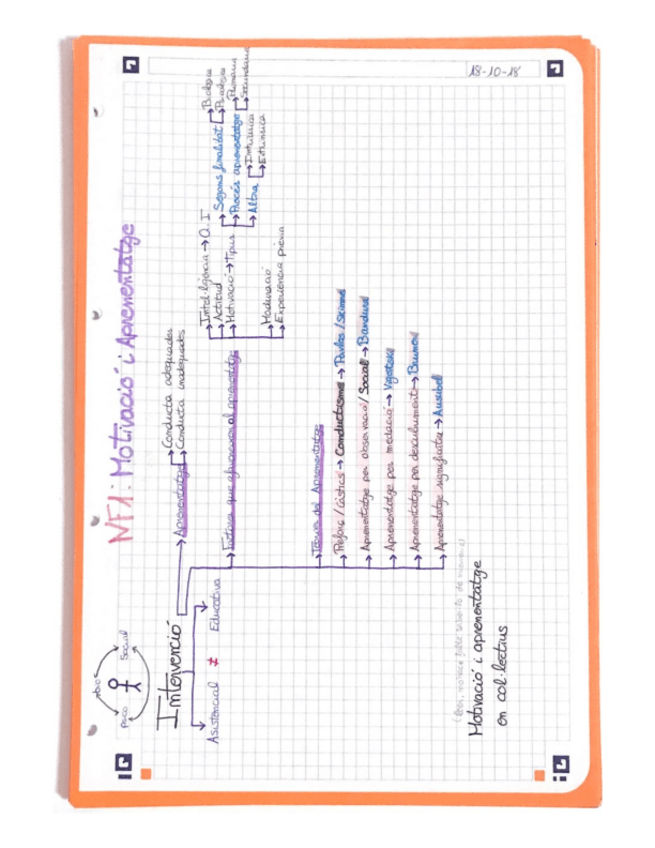 18-10-18
NF1: Motivació i Aprenentatge
bio
psico
Social
Intervenció
Asistencial ≠ Educativa
Aprenentatge → Conducta adequades
→ Conducta inadequades
Factors que afavoreixen al aprenentatge
Intel·ligència → Q.I
Actitud
Motivació → Tipus
Segons finalitat
Procés aprenentatge → Primària
→ Secundària
Altra → Intrínsica
→ Extrínsica
Maduració
Experiència prèvia
Aprenentatge
Reforç / Càstics → Conductisme → Pavlov / Skinner
Aprenentatge per observació / Social → Bandura
Aprenentatge per mediació → Vigotski
Aprenentatge per descubriment → Bruner
Aprenentatge significatiu → Ausubel
Motivació i aprenentatge
en col·lectius